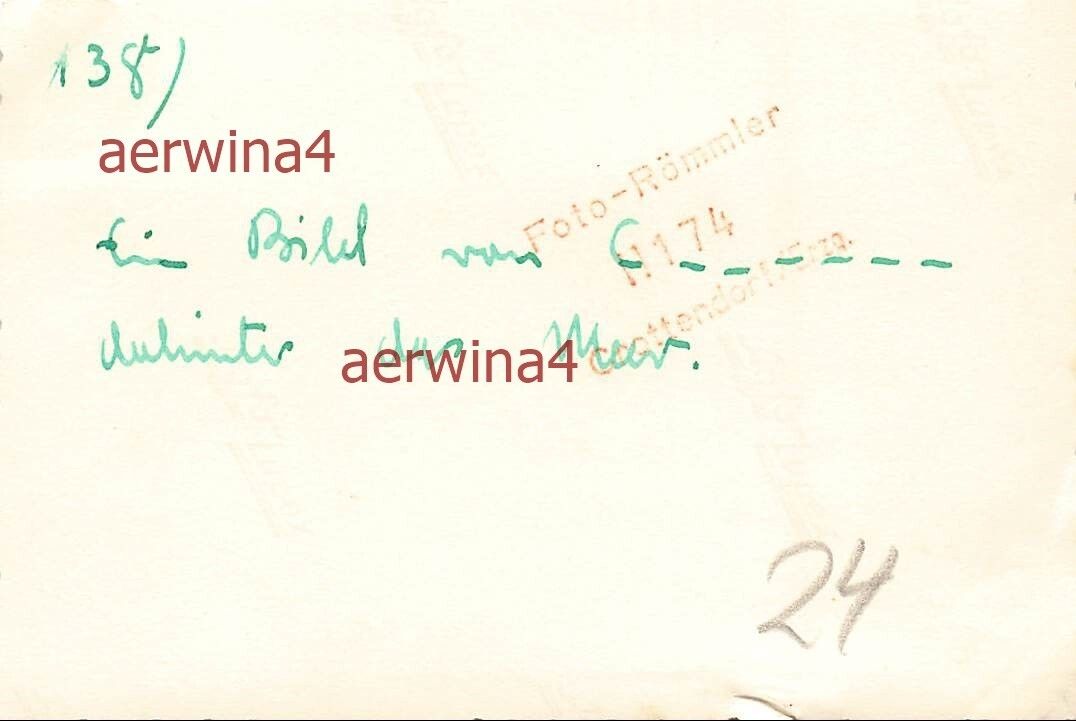 138)
aerwina4
Ein Bild von C _ _ _ _ _ _ _
dahinter das Meer.
aerwina4
Foto-Römmler
1174
Crottendorf/Erzg.
24